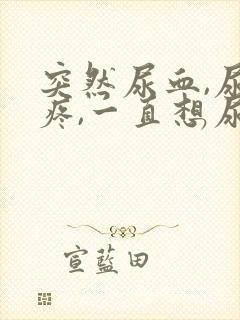 突然尿血,尿
疼,一直想尿
宣蓝田